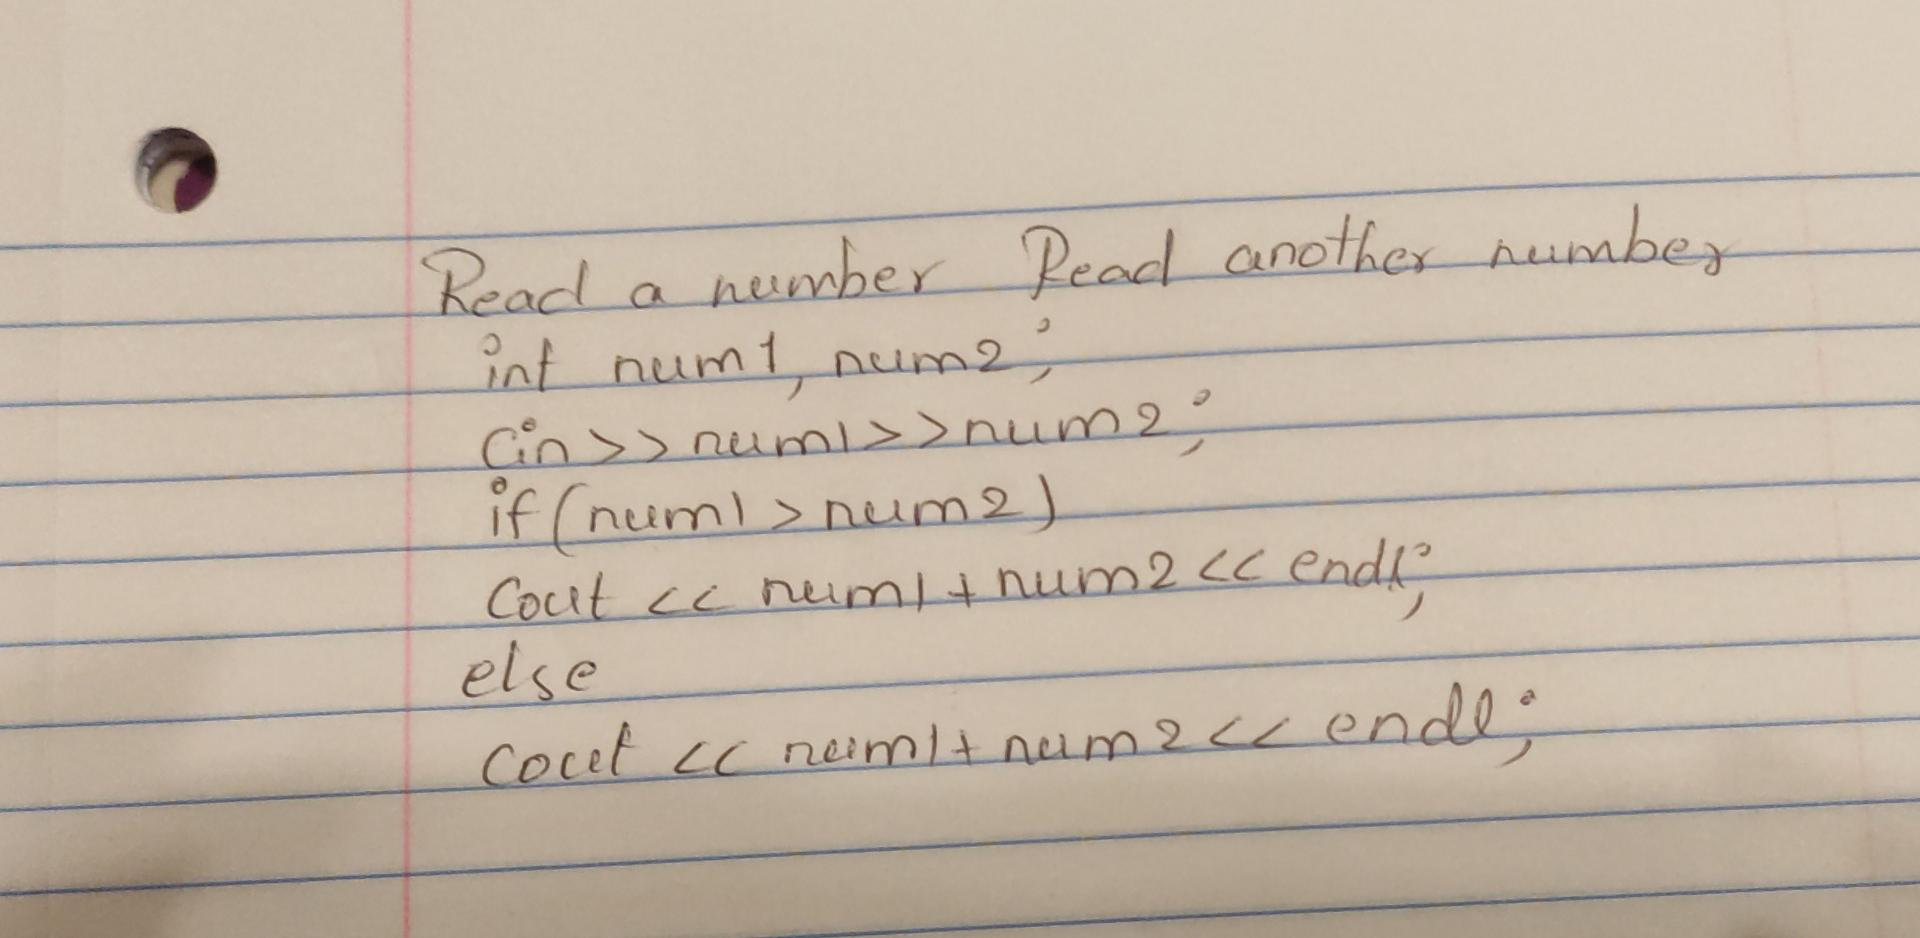 Read a number Read another number
int num1, num2;
Cin>>num1>>num2;
if(num1>num2)
Cout << num1+num2 << endl;
else
cout << num1+num2 << endl;